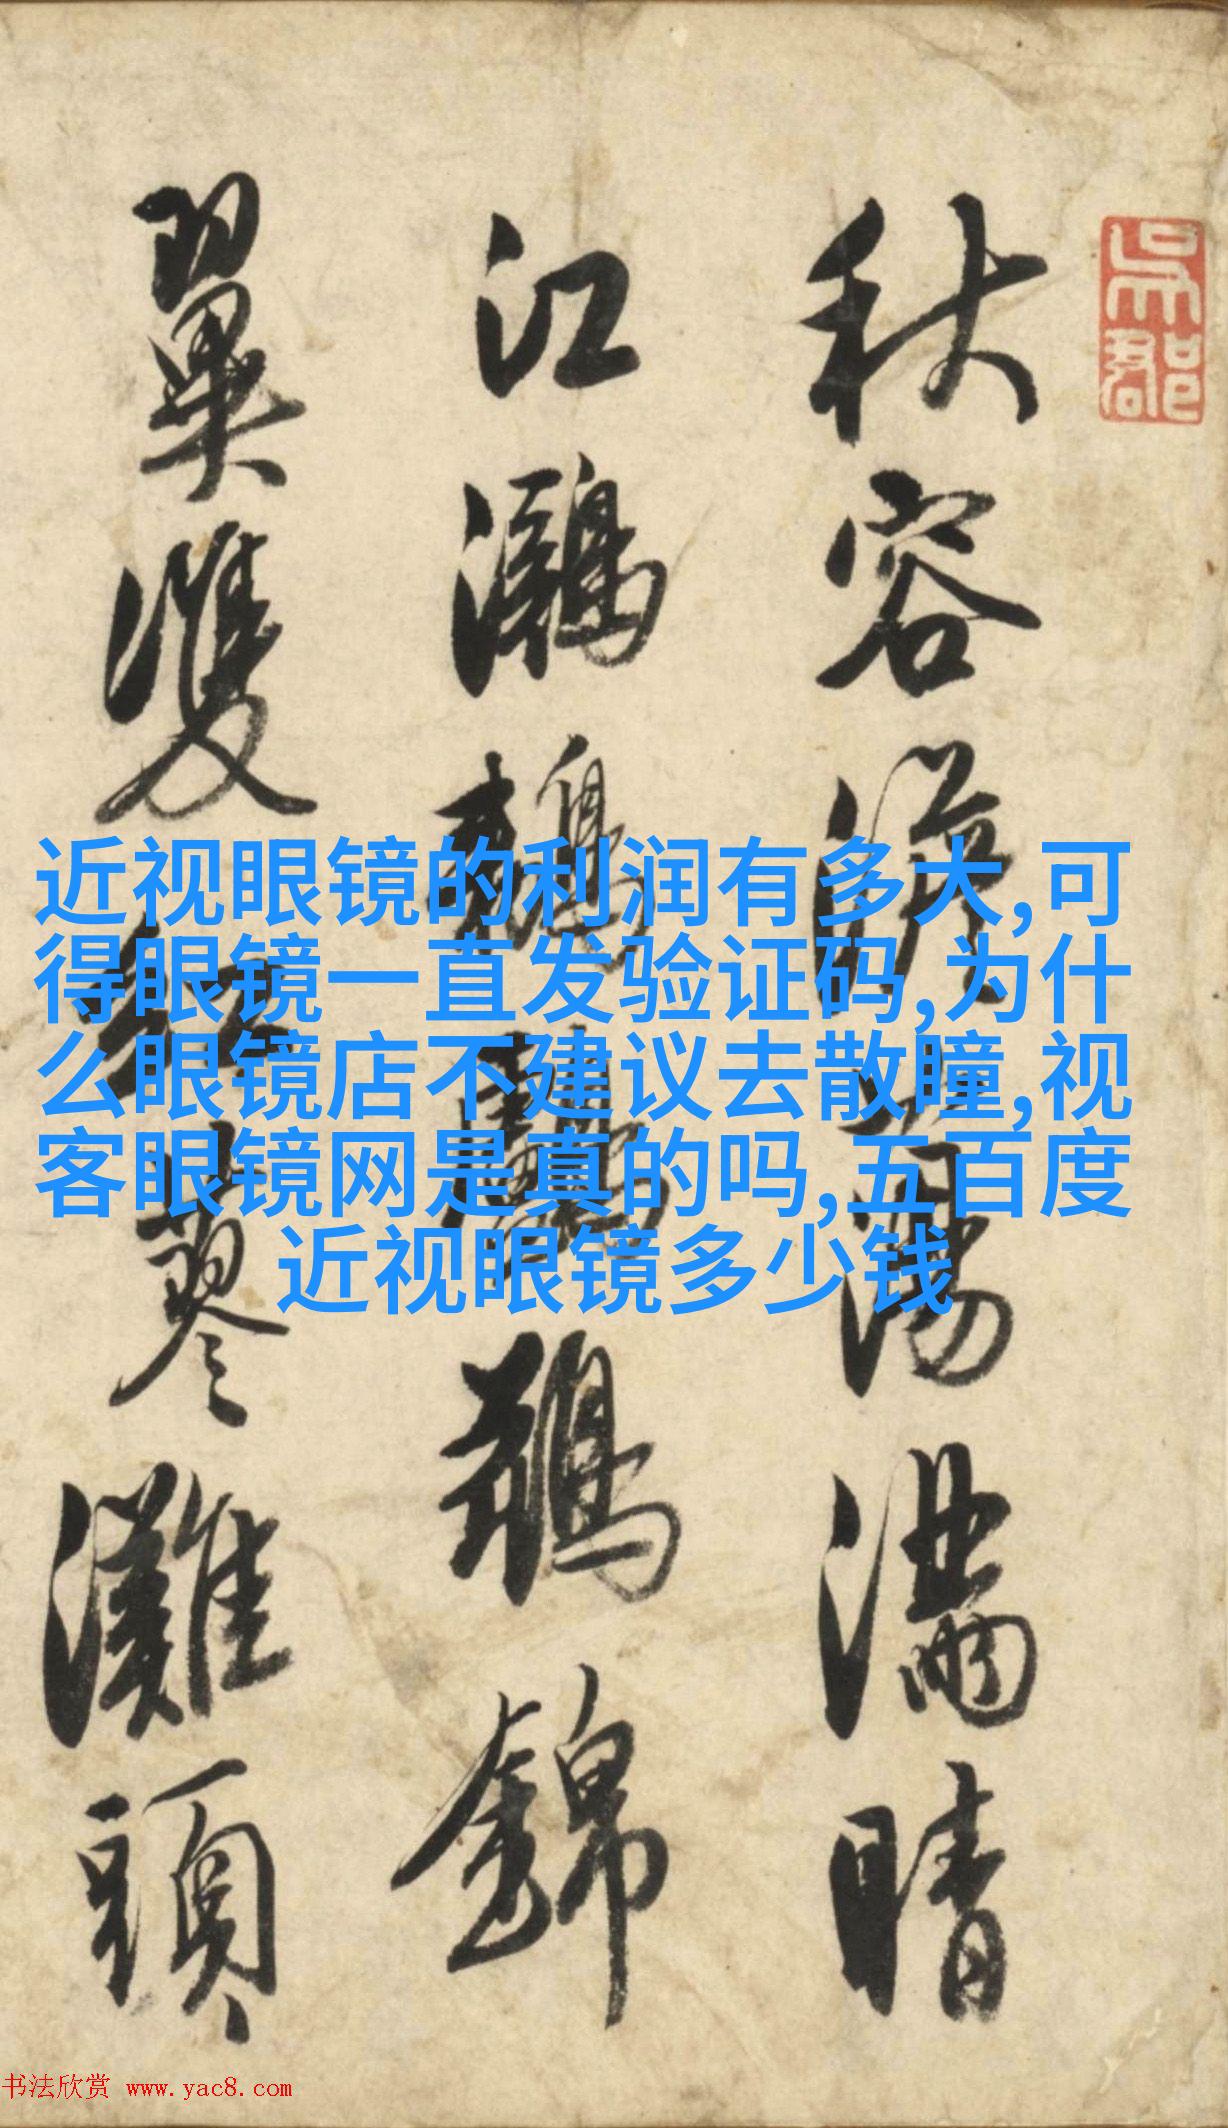 吳郡
秋容蕩滿晴
江鸂鶒錦
翼雙紅蓼灘頭
近视眼镜的利润有多大,可
得眼镜一直发验证码,为什
么眼镜店不建议去散瞳,视
客眼镜网是真的吗,五百度
近视眼镜多少钱
书法欣赏 www.yac8.com